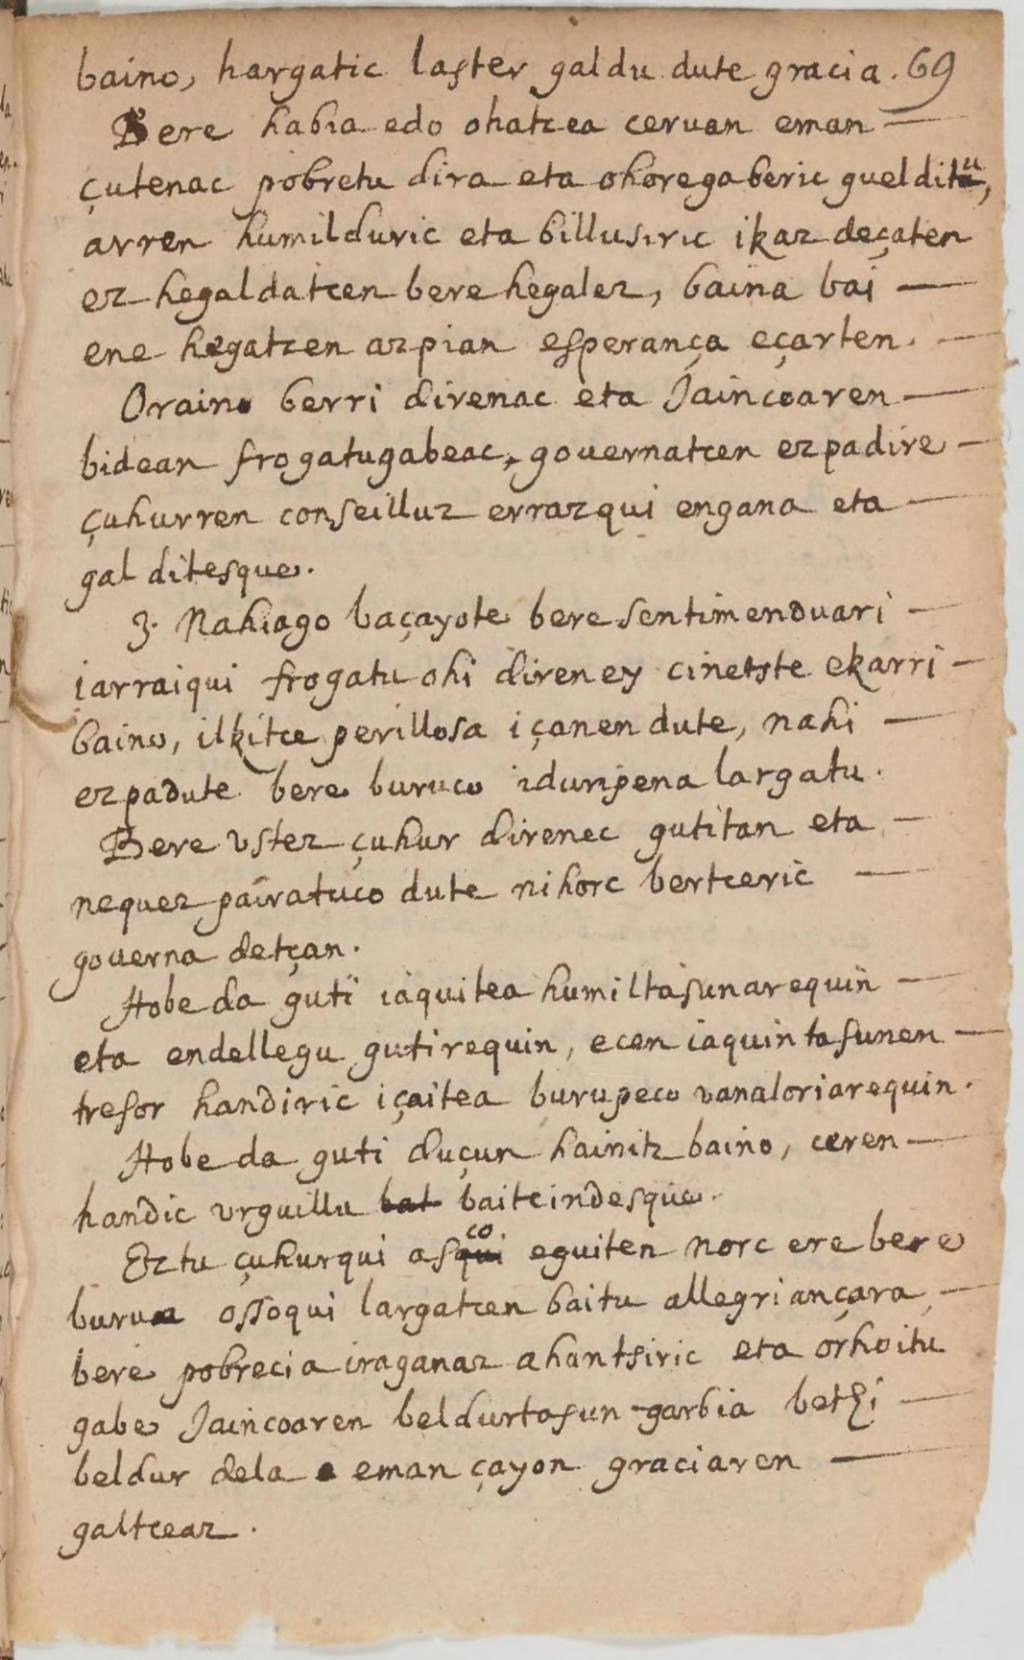 baino, hargatic laster galdu dute gracia. 69
Bere habia edo ohatcea ceruan eman —
çutenac pobretu dira eta ohoregaberic guelditu,
arren humilduric eta billusiric ikaz deçaten
ez hegaldatcen bere hegalez, baina bai —
ene hegatcen azpian esperança eçarten. —
Oraino berri direnac eta Jaincoaren —
bidean frogatugabeac, gouernatcen ezpadire —
çuhurren conseilluz errazqui engana eta —
gal ditesque.
3. Nahiago baçayote bere sentimenduari —
iarraiqui frogatu ohi direney cinetste ekarri —
baino, ilkitce perillosa içanen dute, nahi —
ezpadute bere buruco iduripena largatu.
Bere vstez çuhur direnec gutitan eta —
nequez pairatuco dute nihorc bertceric —
gouerna detçan.
Hobe da guti iaquitea humiltasunarequin —
eta endellegu gutirequin, ecen iaquintasunen —
tresor handiric içaitea burupeco vanaloriarequin.
Hobe da guti duçun hainitz baino, ceren —
handic vrguillu bat baitcindesque.
Eztu çuhurqui asco eguiten norc ere bere
burua ossoqui largatcen baitu allegriançara, —
bere pobrecia iraganaz ahantsiric eta orhoitu
gabe Jaincoaren beldurtasun garbia bethi —
beldur dela eman çayon graciaren —
galtceaz.